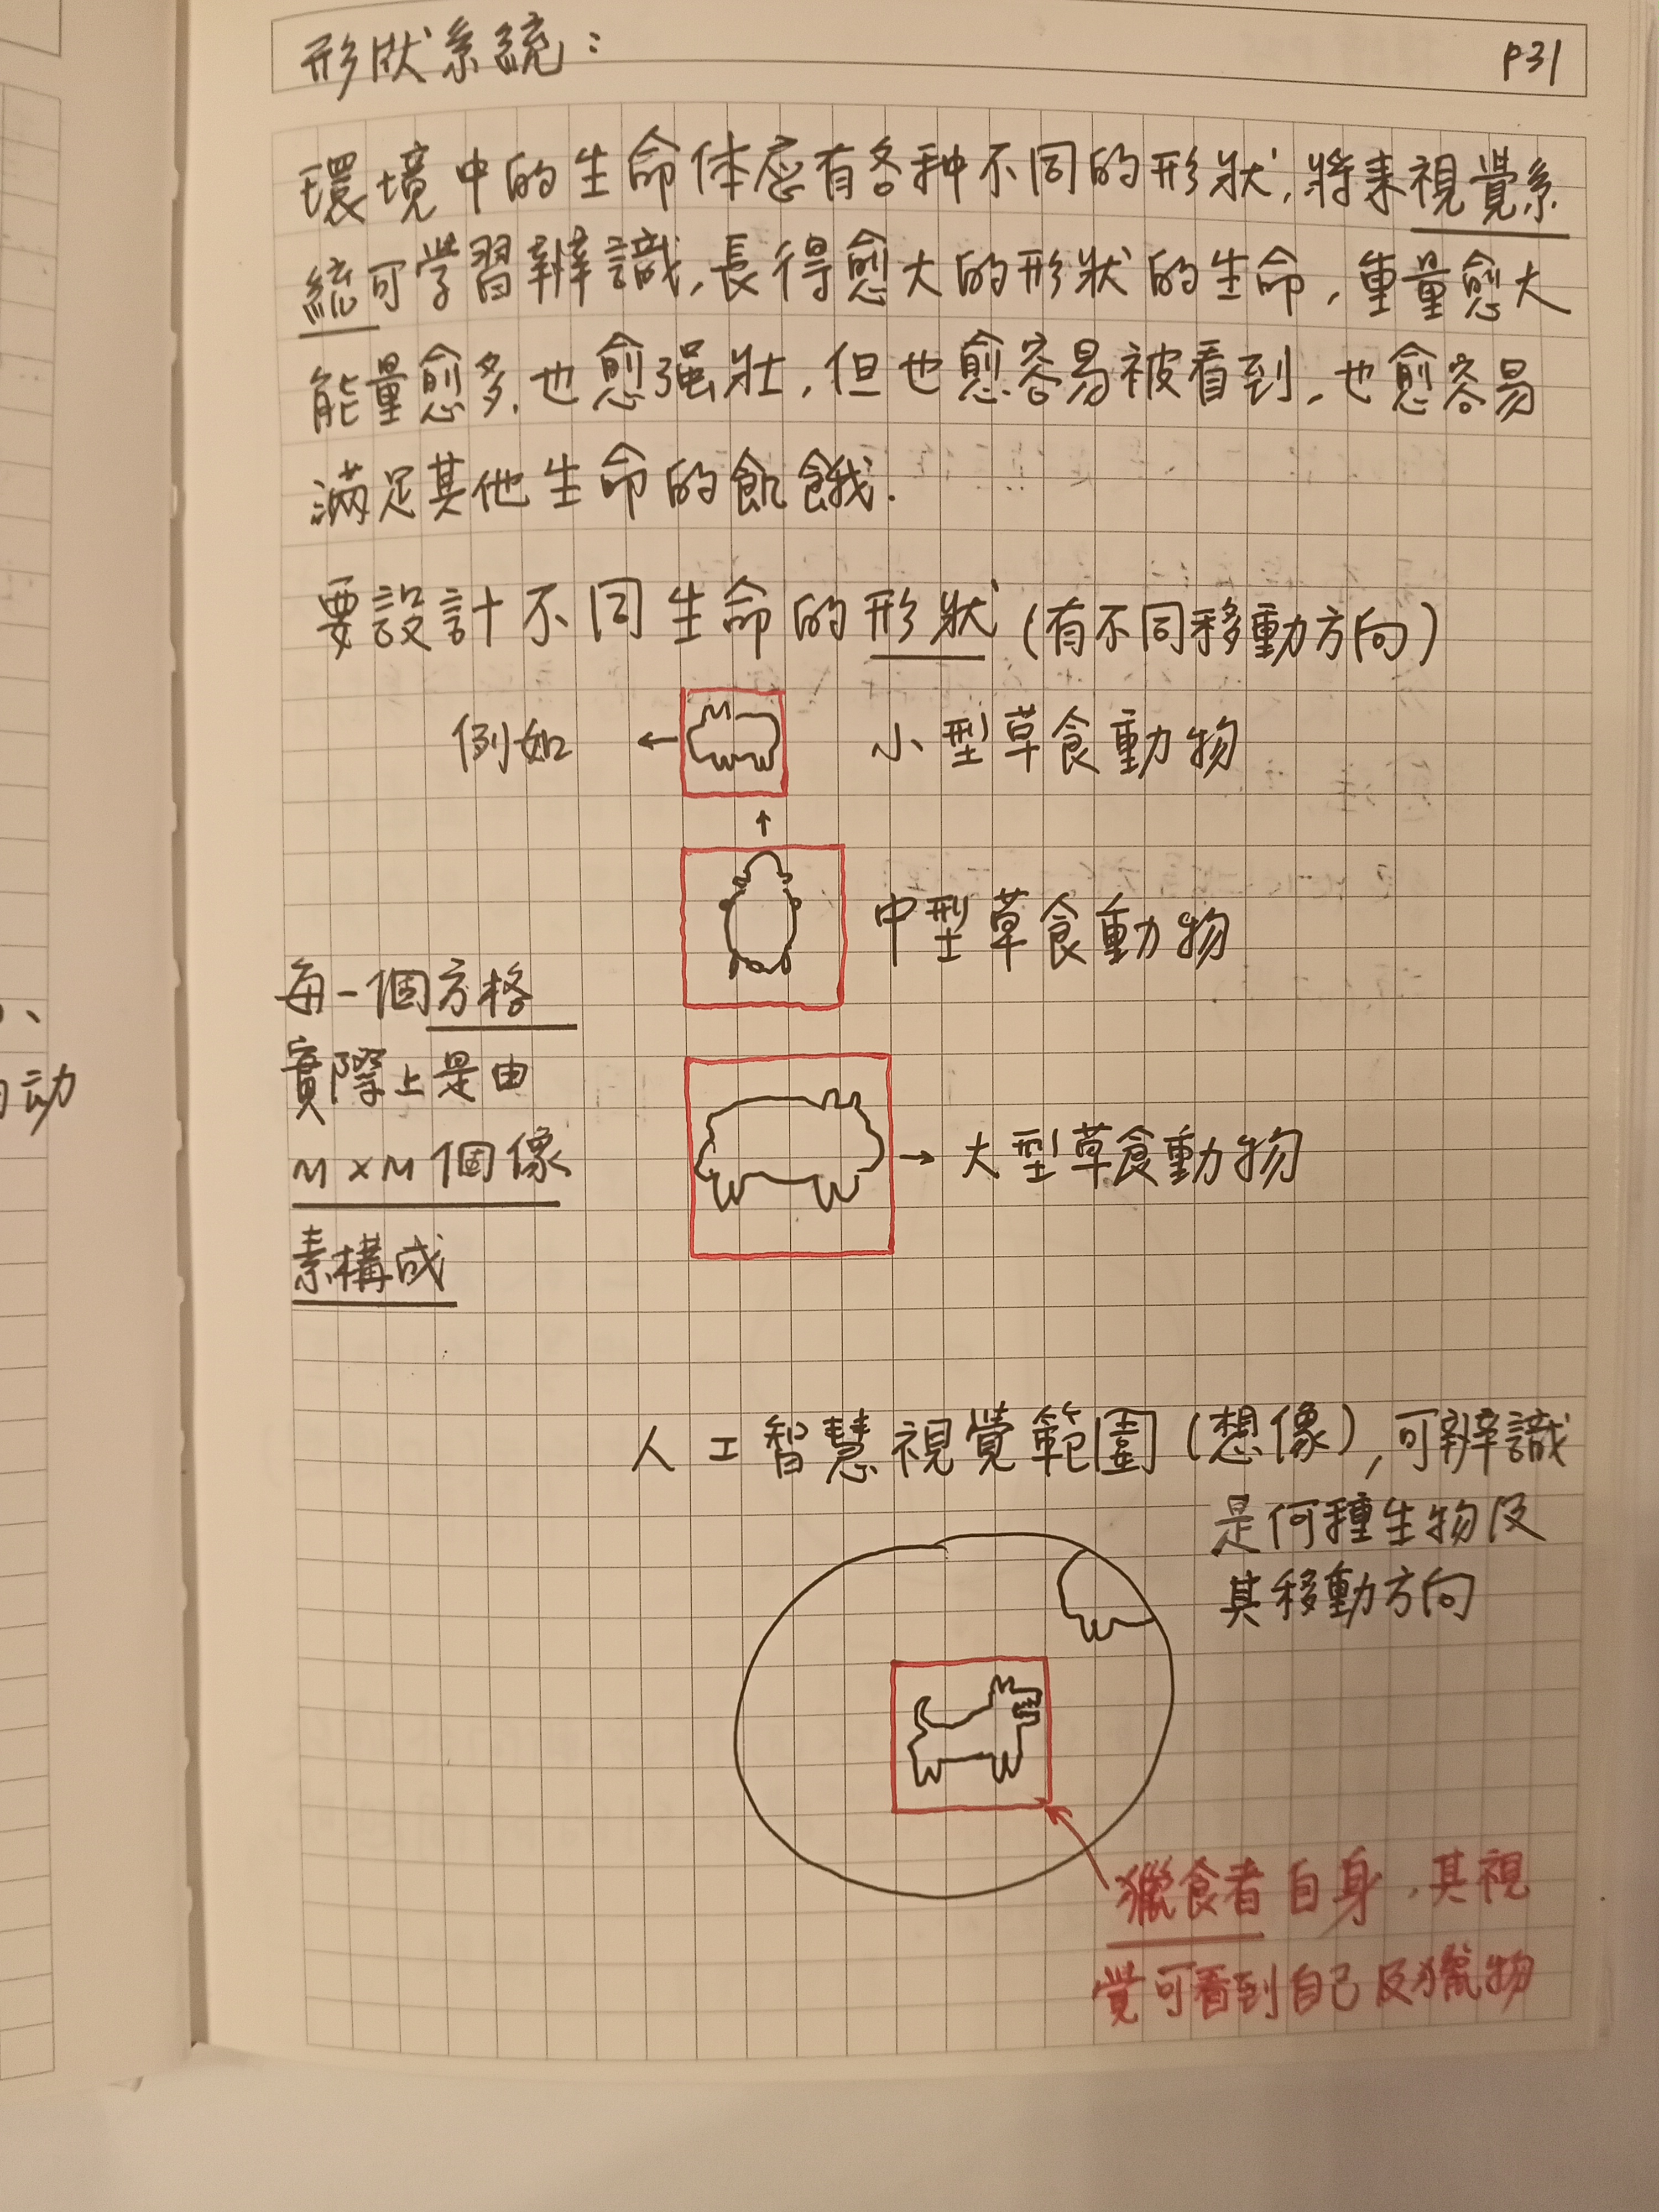 形狀系統：
P31
環境中的生命体应有各种不同的形狀,將来視覺系
統可学習辨識,長得愈大的形狀的生命,重量愈大
能量愈多,也愈强壯,但也愈容易被看到,也愈容易
滿足其他生命的飢餓.
要設計不同生命的形狀(有不同移動方向)
例如 ← 小型草食動物
↑
中型草食動物
每一個方格
實際上是由
→大型草食動物
M×M個像
素構成
人工智慧視覺範圍(想像),可辨識
是何種生物及
其移動方向
獵食者自身,其視
覚可看到自己及獵物
动